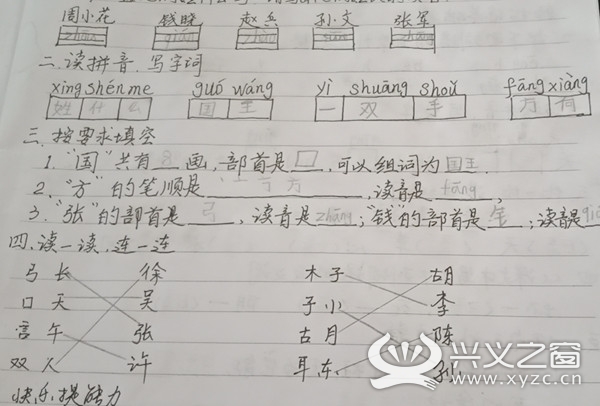 周小花 钱晓 赵兵 孙文 张军
zhōu qián zhào sūn zhāng
二、读拼音，写字词
xìng shén me guó wáng yì shuāng shǒu fāng xiàng
姓 什 么 国 王 一 双 手 方 向
三、按要求填空
1."国"共有 8 画，部首是 囗 ，可以组词为 国王.
2."方"的笔顺是 ，读音是 fāng ，
3."张"的部首是 弓 ，读音是 zhāng ；"钱"的部首是 钅 ；读音是
四、读一读，连一连
弓 长 徐 木 子 胡
口 天 吴 子 小 李
言 午 张 古 月 陈
双 人 许 耳 东 孙
快乐提能力
兴义之窗
www.xyzc.cn